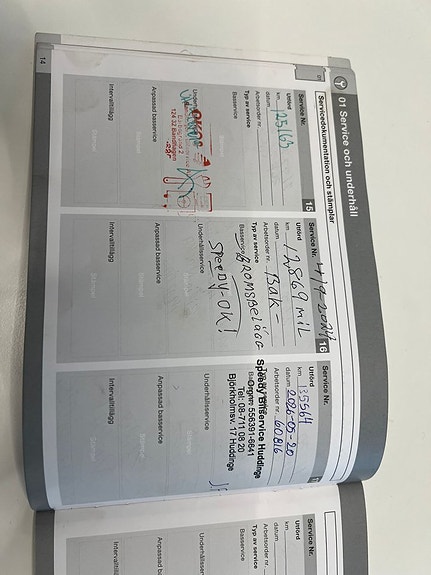 01 Service och underhåll
Servicedokumentation och stämplar
01
Service Nr.
15
Utförd
km
125,163
datum
Arbetsorder nr.
Typ av service
Basservice
Underhållsservice
124 32 Bandhagen
Anpassad basservice
Stämpel
Intervalltillägg
Stämpel
14
Service Nr.
16
4/9-2024
Utförd
km
12,869 mil
datum
Arbetsorder nr.
BAK-
Typ av service
Basservice
BROMSBELÄGG
Underhållsservice
SPEEDY-OK!
Anpassad basservice
Stämpel
Intervalltillägg
Stämpel
Service Nr.
Utförd
km
135564
datum
2026-05-20
Arbetsorder nr.
60816
Speedy Bilservice Huddinge
Orgnr: 556391-6641
Tel: 08-711 08 20
Björkholmsv. 17 Huddinge
Underhållsservice
Anpassad basservice
Stämpel
Intervalltillägg
Stämpel
Service Nr.
Utförd
km
datum
Arbetsorder nr.
Typ av service
Basservice
Underhållsservice
Anpassad basservice
Intervalltillägg